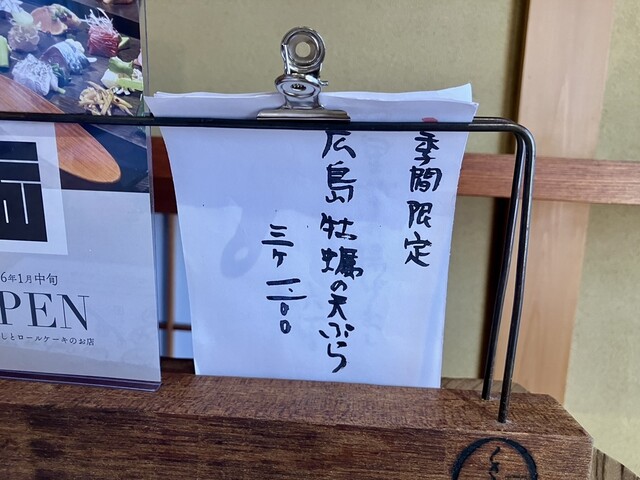 季間限定
広島牡蠣の天ぷら
三ケ 一、二〇〇
6年1月中旬
PEN
しとロールケーキのお店